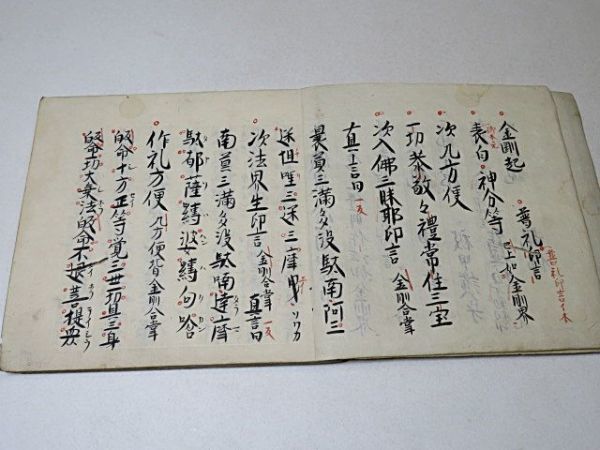 金剛起 普礼印言
表白 神分等 已上如金剛界
次九方便
一切恭敬々禮常住三宝
次入佛三昧耶印言 金剛合掌
真言曰 一反
曩莫三滿多没馱南阿三
迷怛哩三迷三摩曳 ソワカ
次法界生印言 金剛合掌 真言曰 一反
南莫三滿多没馱喃達摩
馱都薩縛婆縛句唅
作礼方便 九方便皆金剛合掌
帰命十方正等覚三世一切具三身
帰命一切大乗法帰命不退菩提衆